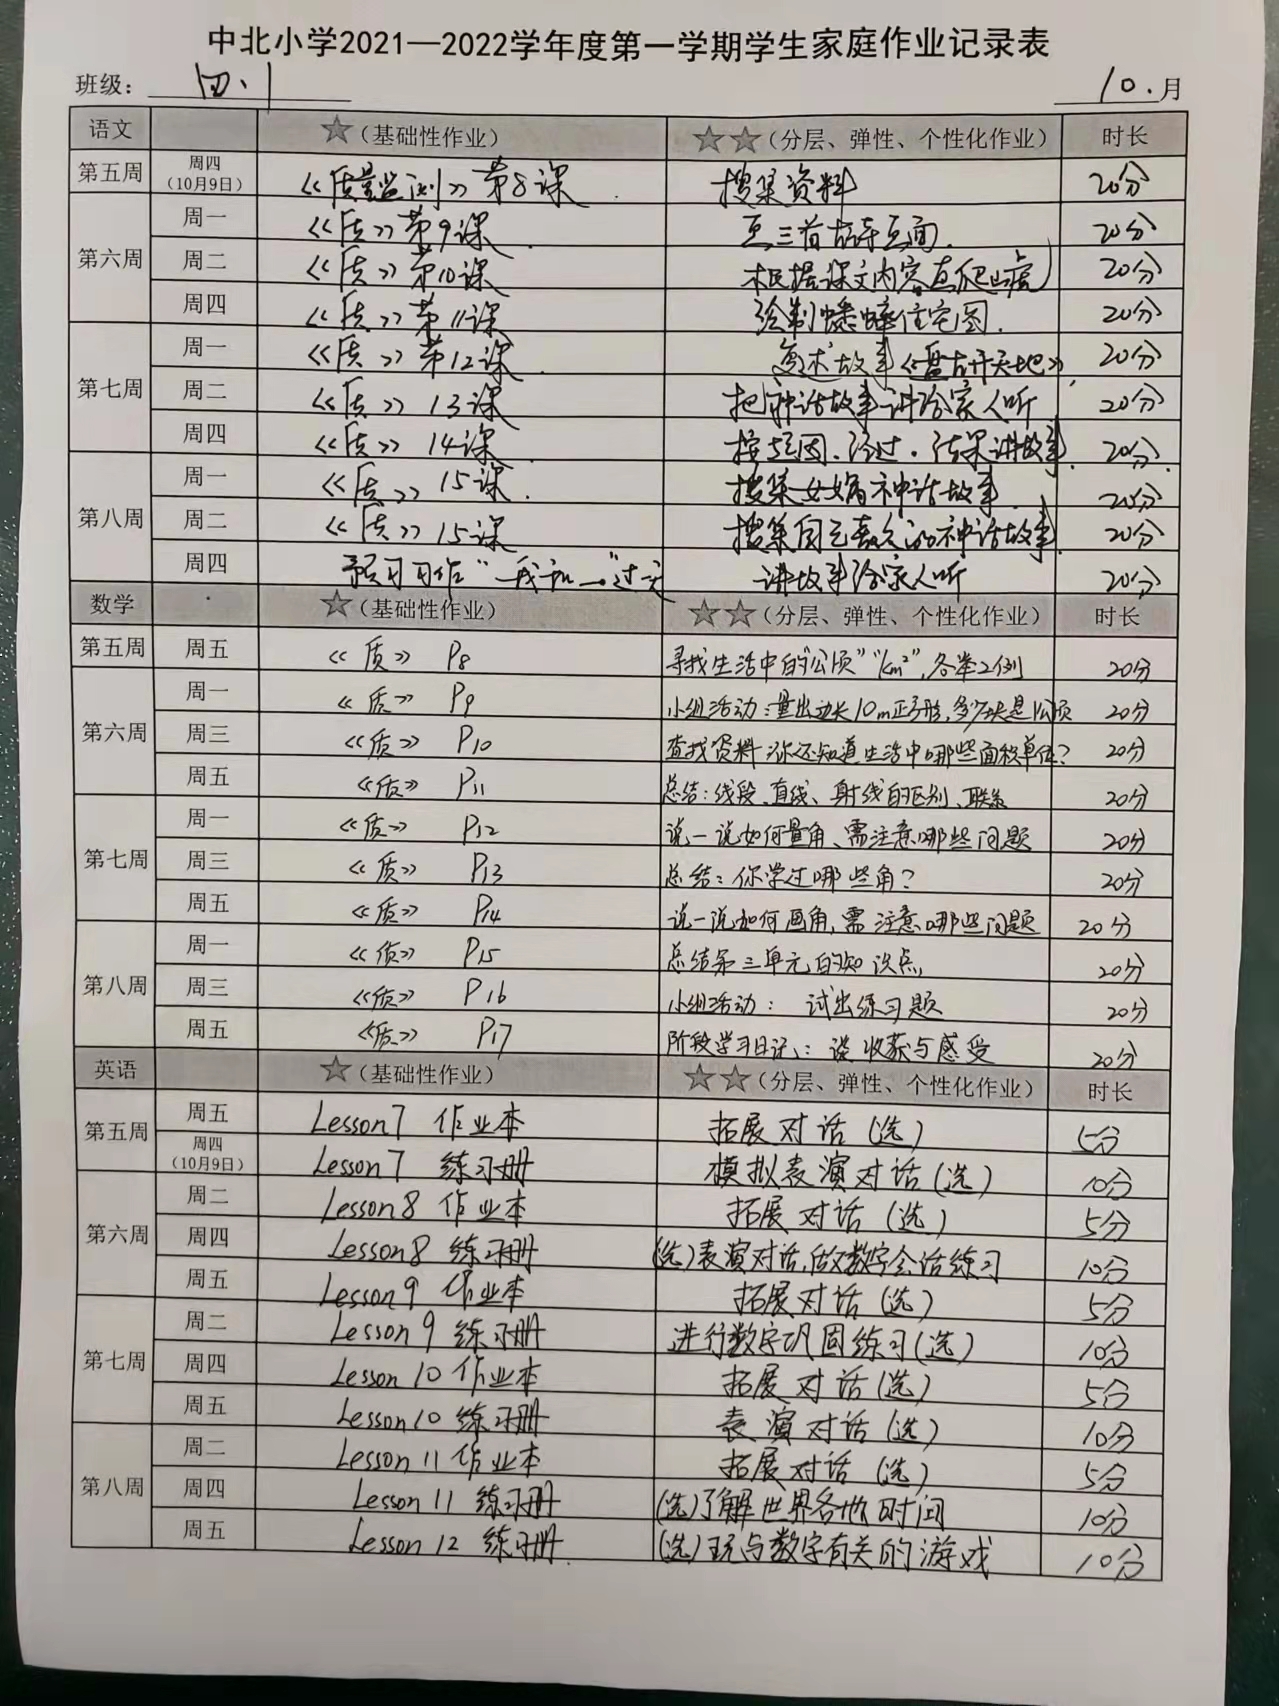 中北小学2021—2022学年度第一学期学生家庭作业记录表
班级：四.1 10.月
语文 ☆（基础性作业） ☆☆（分层、弹性、个性化作业） 时长
第五周 周四（10月9日） 《质量监测》第8课 搜集资料 20分
第六周 周一 《质》第9课 三首古诗 20分
周二 《质》第10课 根据课文内容画爬山虎 20分
周四 《质》第11课 绘制蟋蟀住宅图. 20分
第七周 周一 《质》第12课 复述故事《盘古开天地》 20分
周二 《质》13课 把神话故事讲给家人听 20分
周四 《质》14课 按起因.经过.结果讲故事. 20分
第八周 周一 《质》15课. 搜集女娲神话故事 20分
周二 《质》15课 搜集自己喜欢的神话故事 20分
周四 预习习作“我和—过一天 讲故事给家人听 20分
数学 ☆（基础性作业） ☆☆（分层、弹性、个性化作业） 时长
第五周 周五 《质》 P8 寻找生活中的“公顷”“km²”，各举2例 20分
第六周 周一 《质》 P9 小组活动：量出边长10m正方形，多少块是1公顷 20分
周三 《质》 P10 查找资料：你还知道生活中哪些面积单位？ 20分
周五 《质》 P11 总结：线段、直线、射线的区别、联系 20分
第七周 周一 《质》 P12 说一说如何量角、需注意哪些问题 20分
周三 《质》 P13 总结：你学过哪些角？ 20分
周五 《质》 P14 说一说如何画角，需注意哪些问题 20分
第八周 周一 《质》 P15 总结第三单元的知识点 20分
周三 《质》 P16 小组活动： 试出练习题 20分
周五 《质》 P17 阶段学习日记：谈收获与感受 20分
英语 ☆（基础性作业） ☆☆（分层、弹性、个性化作业） 时长
第五周 周五 Lesson7 作业本 拓展对话（选） 5分
周四（10月9日） Lesson7 练习册 模拟表演对话（选） 10分
第六周 周二 Lesson8 作业本 拓展对话（选） 5分
周四 Lesson8 练习册 （选）表演对话，做数字会话练习 10分
周五 Lesson9 作业本 拓展对话（选） 5分
第七周 周二 Lesson9 练习册 进行数字巩固练习（选） 10分
周四 Lesson10 作业本 拓展对话（选） 5分
周五 Lesson10 练习册 表演对话（选） 10分
第八周 周二 Lesson11 作业本 拓展对话（选） 5分
周四 Lesson11 练习册 （选）了解世界各地时间 10分
周五 Lesson12 练习册. （选）玩与数字有关的游戏 10分